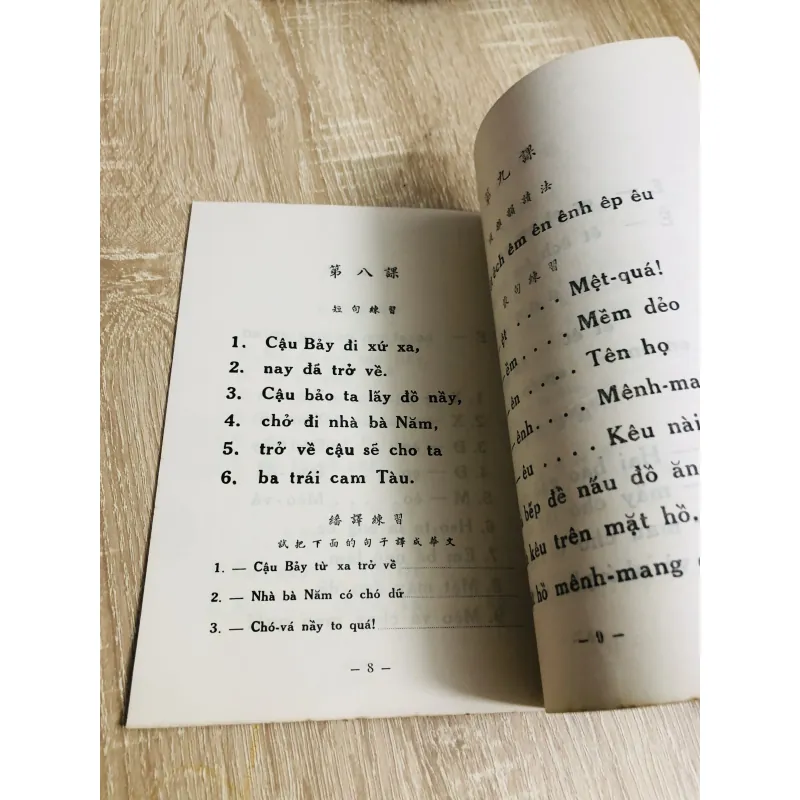 第八課
短句練習
1. Cậu Bảy đi xứ xa,
2. nay đã trở về.
3. Cậu bảo ta lãy đồ nầy,
4. chở đi nhà bà Năm,
5. trở về cậu sẽ cho ta
6. ba trái cam Tàu.
繙譯練習
試把下面的句子譯成華文
1. — Cậu Bảy từ xa trở về
2. — Nhà bà Năm có chó dữ
3. — Chó-vá nầy to quá!
— 8 —
九課
讀法
êch êm ên ênh êp êu
句練習
.... Mệt-quá!
êm.... Mềm dẻo
ên.... Tên họ
—ênh.... Mênh-ma
—êu.... Kêu nài
bếp để nấu đồ ăn
kêu trên mặt hồ.
hồ mênh-mang
— 9 —